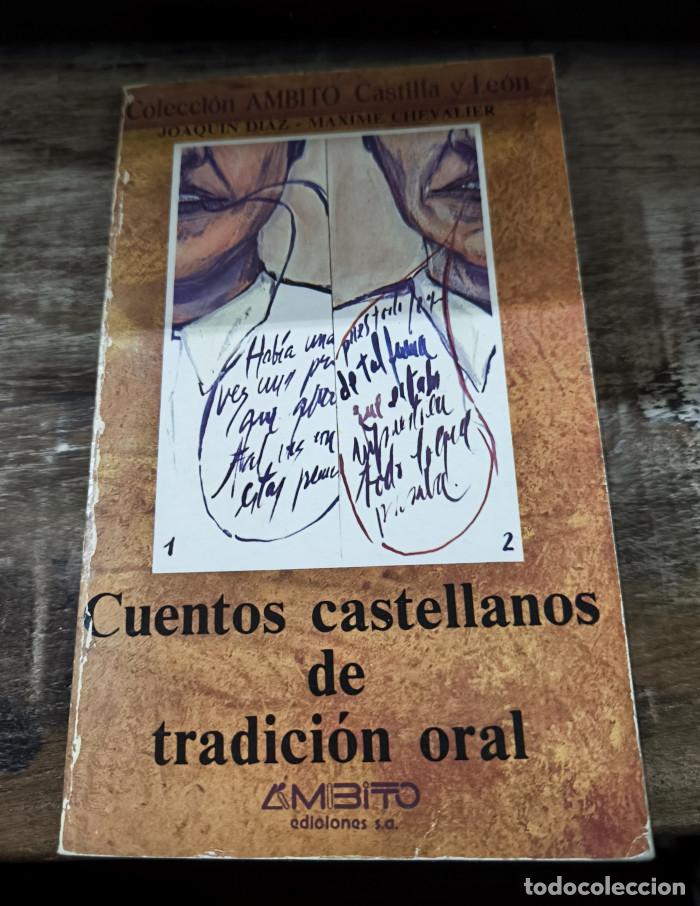 Colección AMBITO Castilla y León
JOAQUIN DIAZ - MAXIME CHEVALIER
Había una
ves una
que
de tal forma
que estaba
todo lo que
1
2
Cuentos castellanos
de
tradición oral
AMBITO
ediciones s.a.
todocoleccion